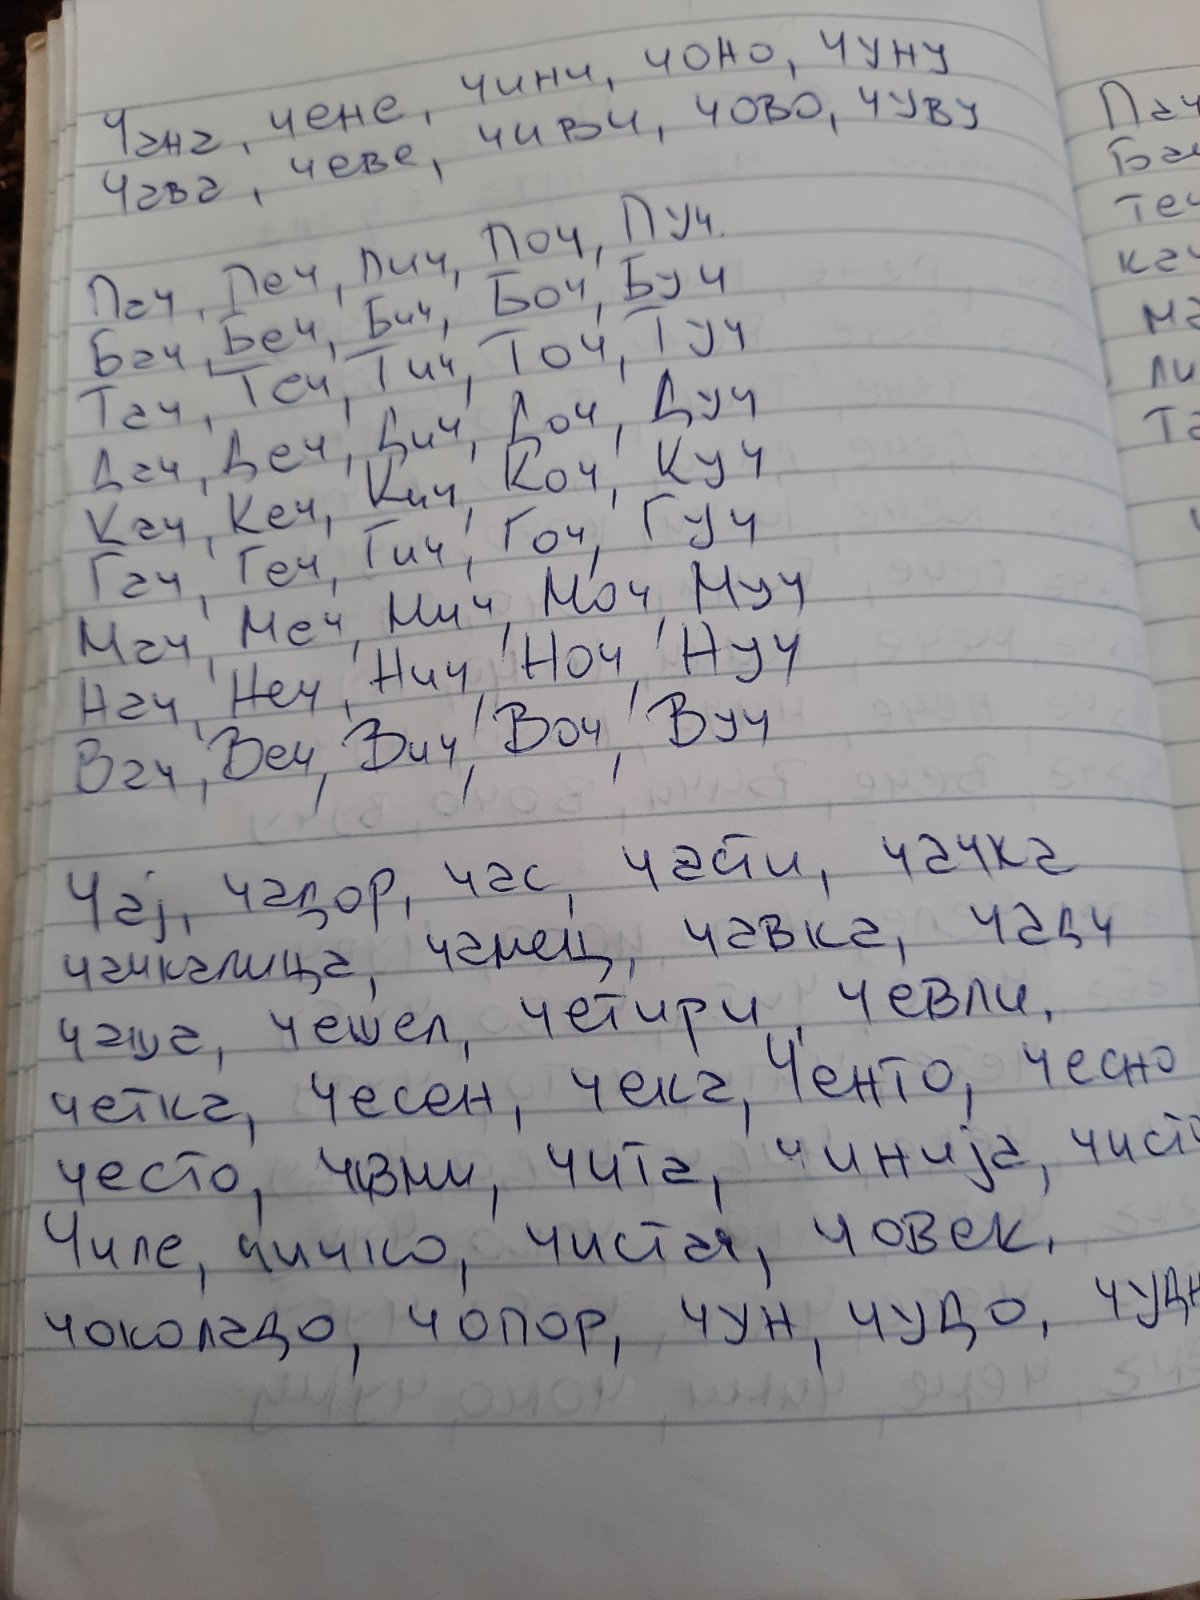 Чана, чене, чини, чоно, чуну
Чава, чеве, чиви, чово, чуву
Пач, Печ, Пич, Поч, Пуч.
Бач, Беч, Бич, Боч, Буч
Тач, Теч, Тич, Точ, Туч
Дач, Деч, Дич, Доч, Дуч
Кач, Кеч, Кич, Коч, Куч
Гач, Геч, Гич, Гоч, Гуч
Мач, Меч, Мич, Моч, Муч
Нач, Неч, Нич, Ноч, Нуч
Вач, Веч, Вич, Воч, Вуч
Чај, чадор, час, части, чачка
чачкалица, чамец, чавка, чади
чаша, чешел, четири, чевли,
четка, чесен, чека, Ченто, чесно
често, чита, чинија,
Чиле, чичко, чистач, човек,
чоколадо, чопор, чун, чудо,
Пач
Бач
теч
кач